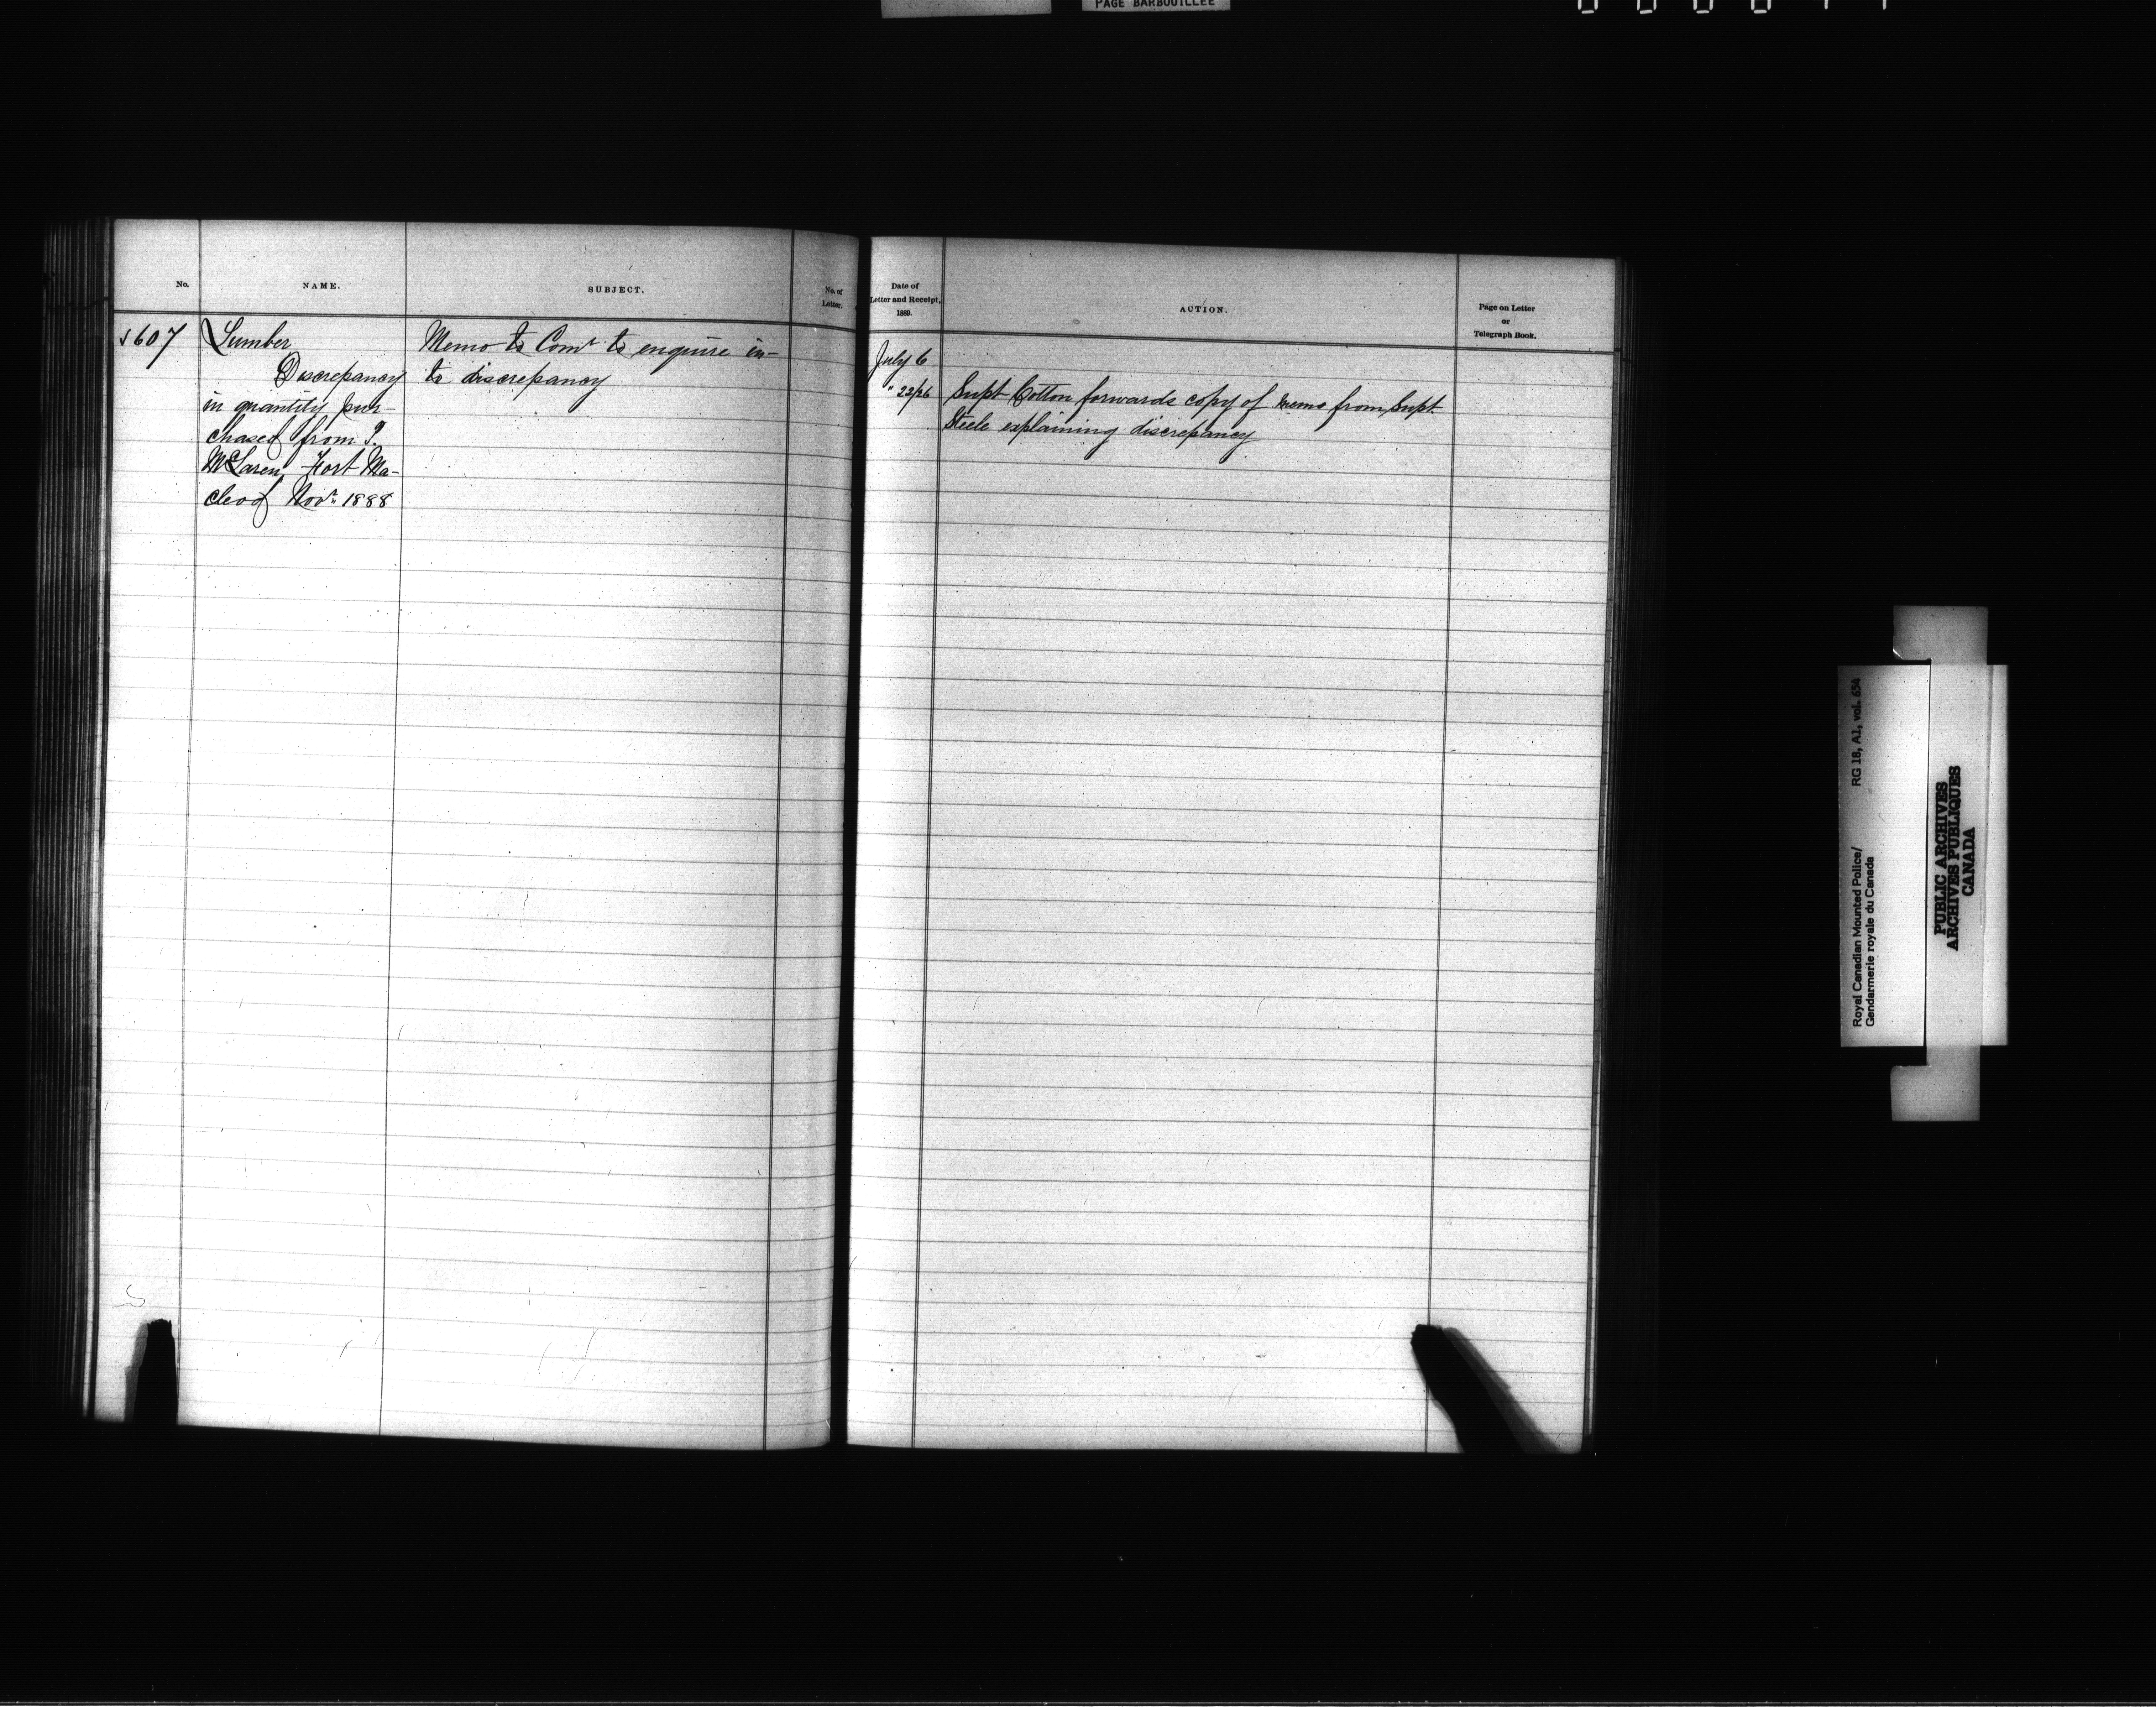 PAGE BARBOUILLÉE
No.
NAME.
SUBJECT.
No. of
Letter.
Date of
Letter and Receipt.
1889.
ACTION.
Page on Letter
or
Telegraph Book.
607
Lumber
Discrepancy
in quantity pur-
chased from P.
McLaren, Fort Ma-
cleod Novr. 1888
Memo to Comr to enquire in-
to discrepancy
July 6
" 22/26
Supt Cotton forwards copy of memo from Supt.
Steele explaining discrepancy
Royal Canadian Mounted Police/ RG 18, A1, vol. 634
Gendarmerie royale du Canada
PUBLIC ARCHIVES
ARCHIVES PUBLIQUES
CANADA